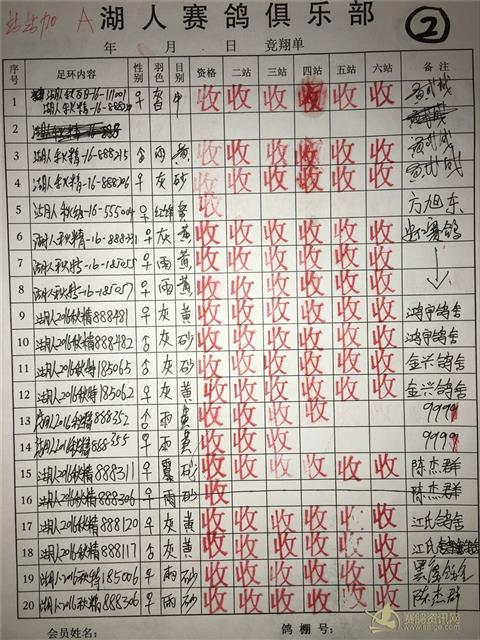 站站加 A 湖人赛鸽俱乐部 ②
年 月 日 竞翔单
序号 足环内容 性别 羽色 目别 资格 二站 三站 四站 五站 六站 备注
1 湖人 -16-111001
湖人 -16- ♀ 灰 收 收 收 收 收 收
2
3 湖人 -16-888215 雨 黄 收 收 收 收 收 收
4 湖人 -16-888206 ♀ 灰 砂 收 收 收 收 收 收
5 湖人 -16-555004 ♀ 收 方旭东
6 湖人 -16-888331 ♀ 灰 黄 收 收 收 收 收 收 赛鸽
7 湖人 -16-185055 ♀ 雨 黄 收 收 收 收 收 收
8 湖人 -16-185057 ♀ 雨 黄 收 收 收 收 收 收
9 湖人2016秋精888481 ♀ 灰 黄 收 收 收 收 收 收 鸿宇鸽舍
10 湖人2016秋精888482 灰 砂 收 收 收 收 收 收 鸿宇鸽舍
11 湖人2016秋精185065 灰 砂 收 收 收 收 收 收 金兴鸽舍
12 湖人2016秋精185062 ♀ 灰 黄 收 收 收 收 收 收 金兴鸽舍
13 湖人2016秋精888352 雨 黄 收 收 收 收 9999
14 湖人2016秋精888355 ♀ 雨 黄 收 收 收 9999
15 湖人2016秋精888311 ♀ 砂 收 收 收 收 收 收 陈杰群
16 湖人2016秋精888306 ♀ 雨 砂 收 陈杰群
17 湖人2016秋精888120 ♀ 灰 黄 收 收 收 收 收 收 江氏鸽舍
18 湖人2016秋精888117 灰 黄 收 收 收 收 收 收 江氏
19 湖人2016秋精185006 ♀ 雨 砂 收 收 收 收 收 收
20 湖人2016秋精888306 ♀ 雨 砂 收 收 收 收 收 收 陈杰群
会员姓名： 鸽棚号：
赛鸽资讯网